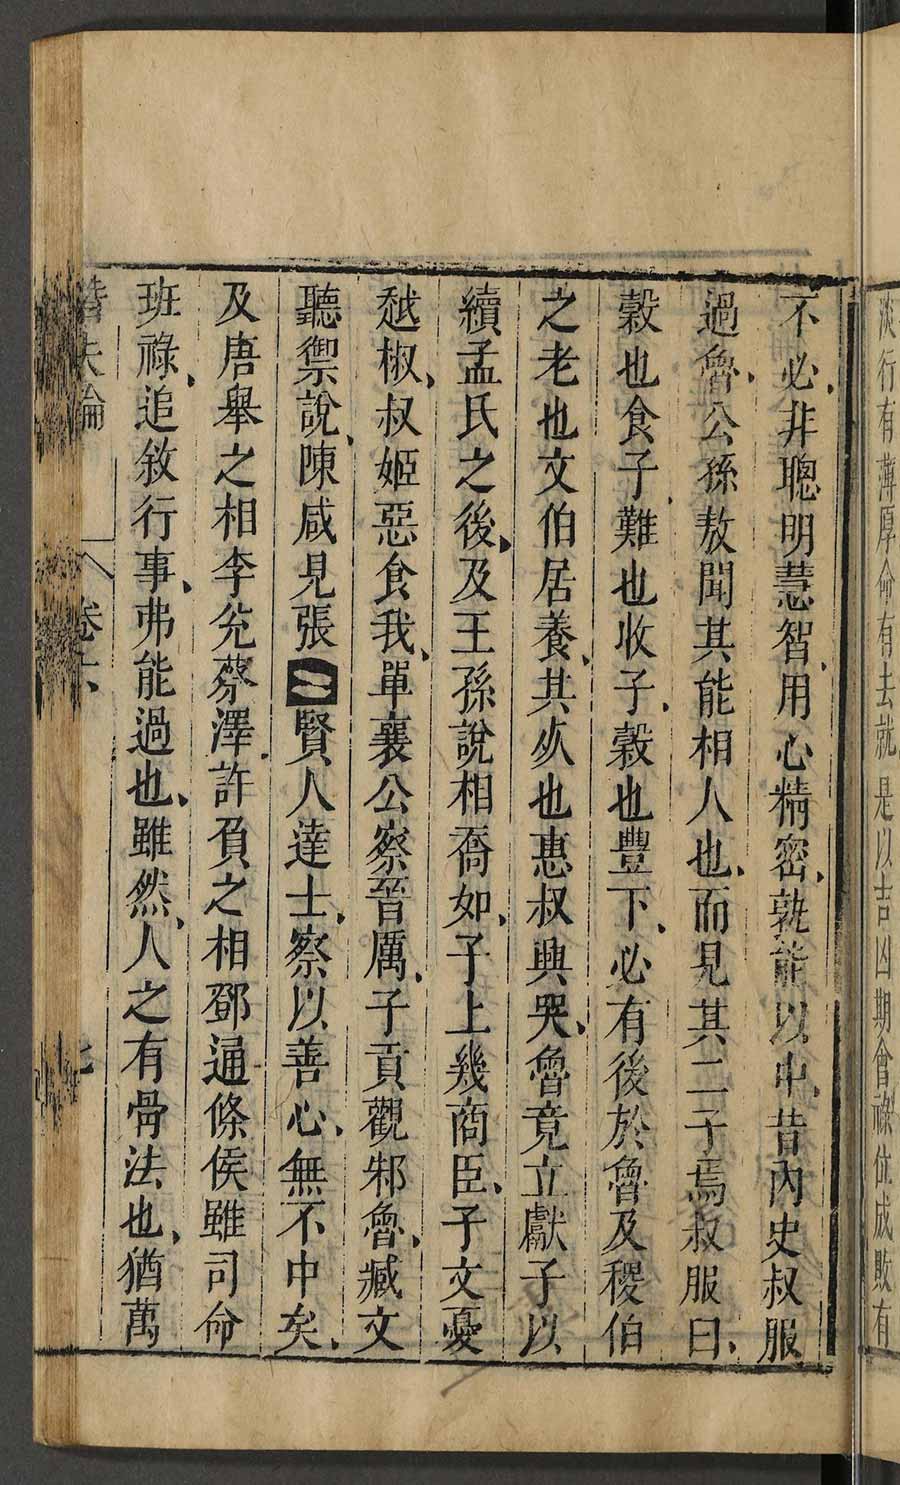 淡行有薄厚命有去就是以吉凶期會祿位成敗有
不必非聰明慧智用心精密孰能以中昔內史叔服
過魯公孫敖聞其能相人也而見其二子焉叔服曰
穀也食子難也收子穀也豐下必有後於魯及穆伯
之老也文伯居養其死也惠叔典哭魯竟立獻子以
續孟氏之後及王孫說相喬如子上幾商臣子文憂
越椒叔姬惡食我單襄公察晉厲子貢觀邾魯臧文
聽禦說陳咸見張賢人達士察以善心無不中矣
及唐舉之相李兌蔡澤許負之相鄧通條侯雖司命
班祿追敘行事弗能過也雖然人之有骨法也猶萬
潛夫論 卷六 七